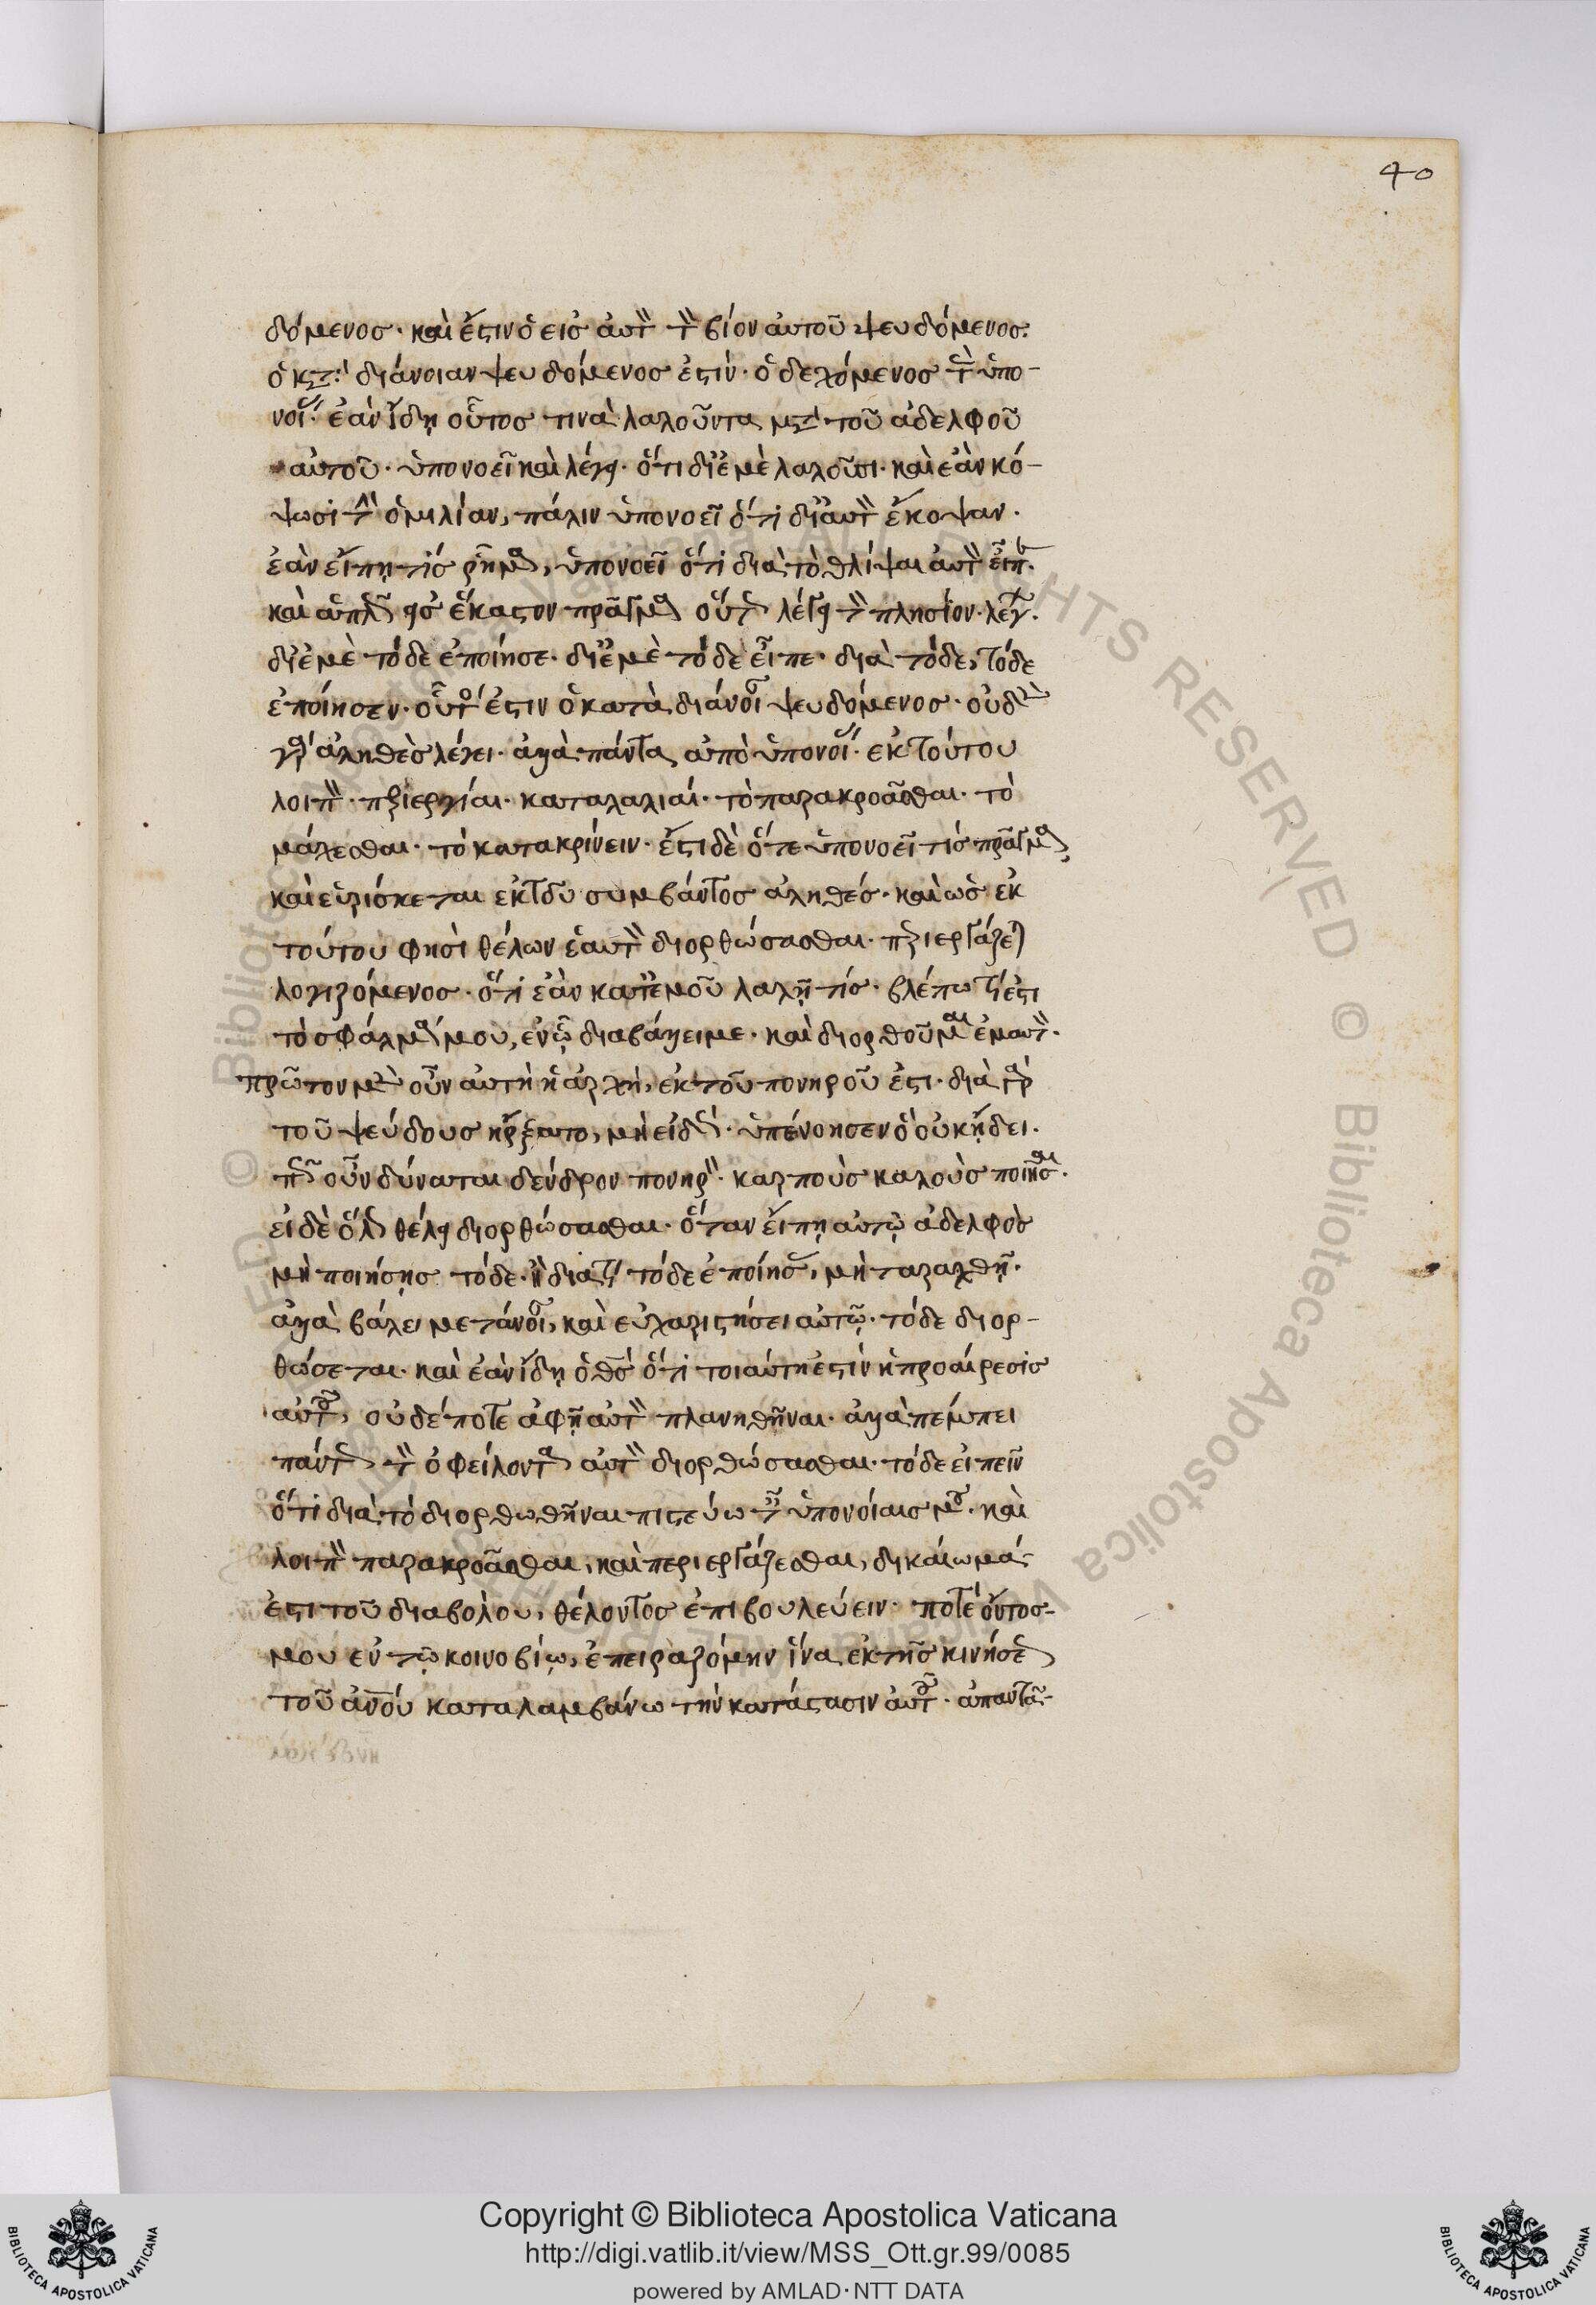 40
δόμενος· καὶ ἔστιν ὁ εἰς αὐτὸν τὸν βίον αὐτοῦ ψευδόμενος·
ὁ κατὰ διάνοιαν ψευδόμενος ἐστίν· ὁ δεχόμενος τὰς ὑπο-
νοίας· ἐὰν ἴδῃ οὗτος τινὰ λαλοῦντα μετὰ τοῦ ἀδελφοῦ
αὐτοῦ· ὑπονοεῖ καὶ λέγει· ὅτι δι' ἐμὲ λαλοῦσι· καὶ ἐὰν κό-
ψωσι τὴν ὁμιλίαν, πάλιν ὑπονοεῖ ὅτι δι' αὐτὸν ἔκοψαν·
ἐὰν εἴπῃ τίς ῥῆμα, ὑπονοεῖ ὅτι διὰ τὸ θλίψαι αὐτὸν εἶπεν·
καὶ ἁπλῶς εἰς ἕκαστον πρᾶγμα οὕτως λέγει τὸν πλησίον· λέγων·
δι' ἐμὲ τόδε ἐποίησε· δι' ἐμὲ τόδε εἶπε· διὰ τόδε, τόδε
ἐποίησεν· οὗτός ἐστιν ὁ κατὰ διάνοιαν ψευδόμενος· οὐδὲν
γὰρ ἀληθὲς λέγει· ἀλλὰ πάντα ἀπὸ ὑπονοίας· ἐκ τούτου
λοιπὸν· περιεργίαι· καταλαλιαί· τὸ παρακροᾶσθαι· τὸ
μάχεσθαι· τὸ κατακρίνειν· ἔστι δὲ ὅτε ὑπονοεῖ τίς πρᾶγμα,
καὶ εὑρίσκεται ἐκ τοῦ συμβάντος ἀληθές· καὶ ὡς ἐκ
τούτου φησὶ θέλων ἑαυτὸν διορθώσασθαι· περιεργάζεται
λογιζόμενος· ὅτι ἐὰν κατ' ἐμοῦ λαλῇ τίς· βλέπω τί ἐστι
τὸ σφάλμα μου, ἐν ᾧ διαβάλλει με· καὶ διορθοῦμαι ἐμαυτόν·
πρῶτον μὲν οὖν αὐτὴ ἡ ἀρχὴ, ἐκ τοῦ πονηροῦ ἐστι· διὰ γὰρ
τοῦ ψεύδους ἤρξατο, μὴ εἰδὼς· ὑπένοησεν ὃ οὐκ ᾔδει·
πῶς οὖν δύναται δένδρον πονηρὸν· καρποὺς καλοὺς ποιῆσαι·
εἰ δὲ ὅλως θέλει διορθώσασθαι· ὅταν εἴπῃ αὐτῷ ἀδελφὸς
μὴ ποιήσῃς τόδε· ἢ διατί τόδε ἐποίησας, μὴ ταραχθῇ·
ἀλλὰ βάλει μετάνοιαν, καὶ εὐχαριστήσει αὐτῷ· τόδε διορ-
θώσεται· καὶ ἐὰν ἴδῃ ὁ θεὸς ὅτι τοιαύτη ἐστὶν ἡ προαίρεσις
αὐτοῦ, οὐδέποτε ἀφῇ αὐτὸν πλανηθῆναι· ἀλλὰ πέμπει
πάντως τὸν ὀφείλοντα αὐτὸν διορθώσασθαι· τὸ δὲ εἰπεῖν
ὅτι διὰ τὸ διορθωθῆναι πιστεύω ταῖς ὑπονοίαις μου· καὶ
λοιπὸν παρακροᾶσθαι, καὶ περιεργάζεσθαι, δικαίωμά
ἐστι τοῦ διαβόλου, θέλοντος ἐπιβουλεύειν· ποτὲ ὄντος
μου ἐν τῷ κοινοβίῳ, ἐπειραζόμην ἵνα ἐκ τῆς κινήσεως
τοῦ ἀνθρώπου καταλαμβάνω τὴν κατάστασιν αὐτοῦ· ἀπαντᾶ-
Copyright © Biblioteca Apostolica Vaticana
http://digi.vatlib.it/view/MSS_Ott.gr.99/0085
powered by AMLAD·NTT DATA